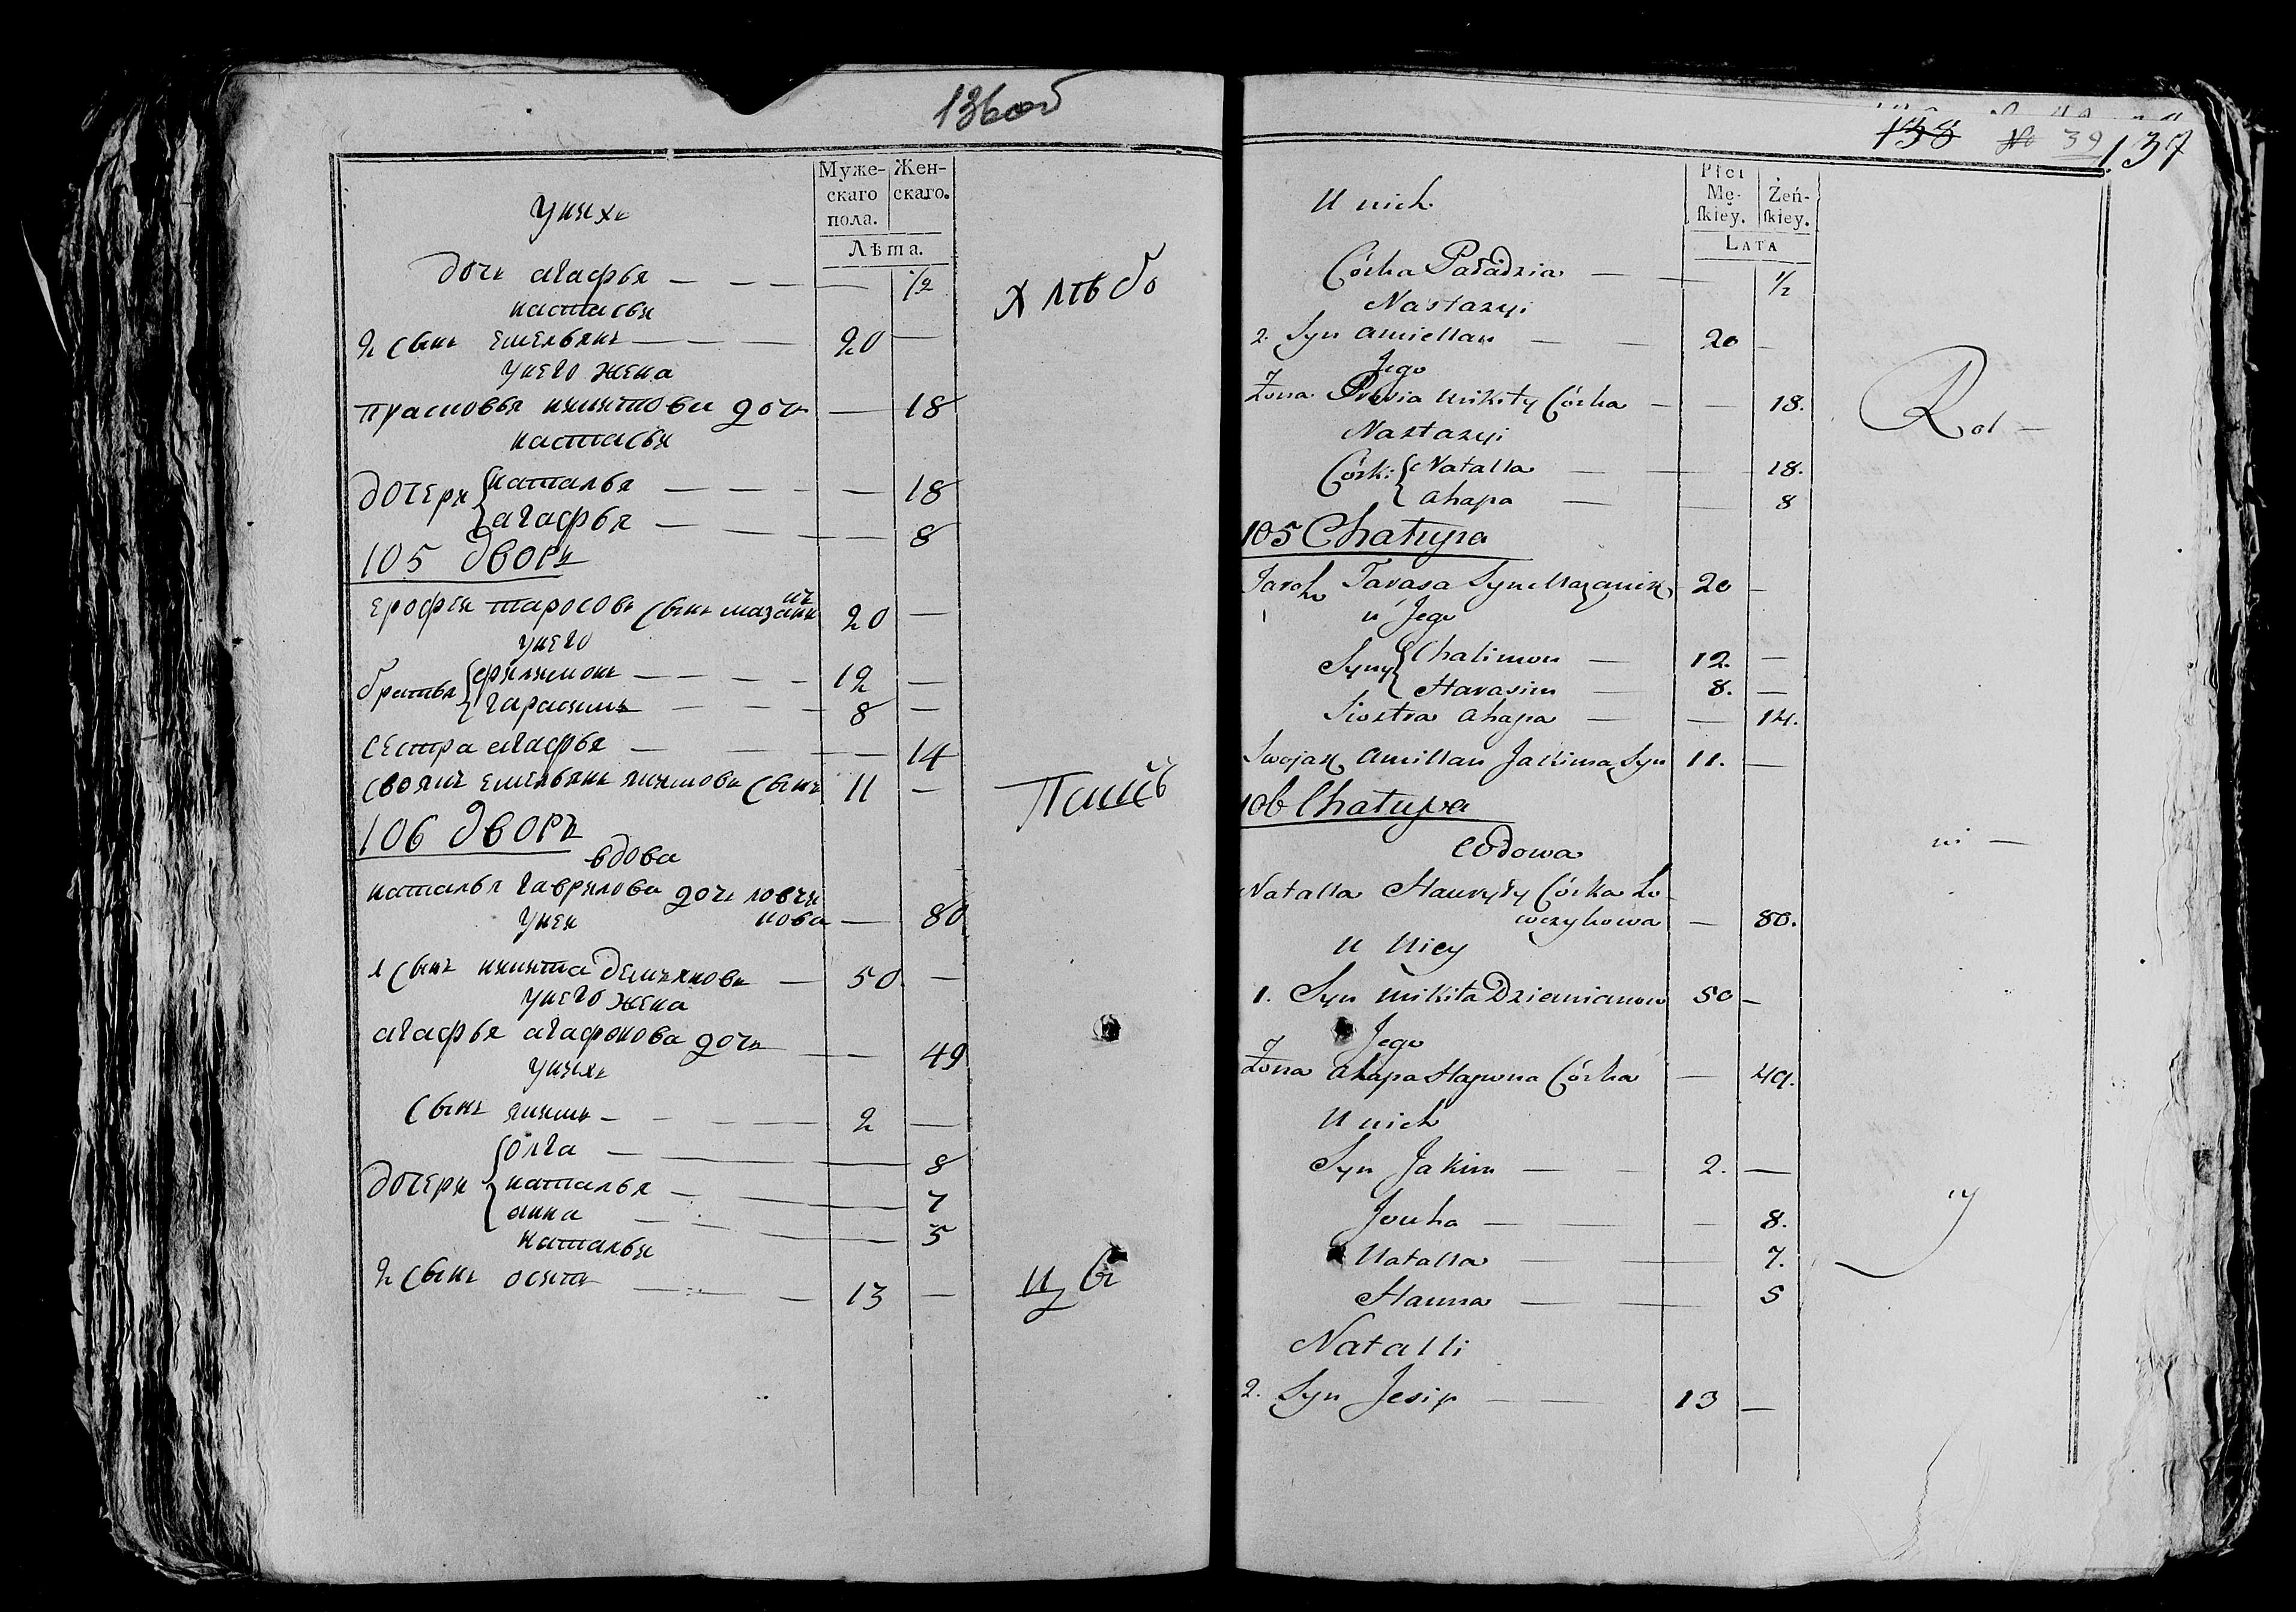 136об
Муже-
скаго
пола.
Жен-
скаго.
Лѣта.
у них
дочь агафья — — — — 1/2
настасьи
2 сынъ емельянъ — — — 20 —
у него жена
прасковья никитова дочь — 18
настасьи
дочери { наталья — — — — 18
агафья — — — — 8
105 дворъ
ерофеи тарасовъ сынъ мазаникъ 20 —
у него
братья { филимонъ — — — — 12 —
гарасимъ — — — 8 —
сестра агафья — — — — 14
своякъ емельянъ якимовъ сынъ 11 —
106 дворъ
вдова
наталья гаврилова дочь ловчи
кова — 80
у неи
1 сынъ никита демьяновъ — 50 —
у него жена
агафья агафонова дочь — — 49
у нихъ
сынъ якимъ — — — — 2 —
дочери { олга — — — 8
наталья — — — 7
анна — — — 5
натальи
2 сынъ осипъ — — — 13 —
хлѣбо
Паш
138 39 137
Płci
Mę-
ſkiey.
Żeń-
ſkiey.
LATA
U nich
Córka Paradzia — — 1/2
Nastazyi
2. Syn Amiellan — — 20 —
Jego
Żona Mikity Córka — — 18.
Nastazyi
Córki { Natalla — — — 18.
Ahapa — — 8
105 Chatupa
Tarasa Syn Mazanik 20 —
u Jego
Syny { Chalimon — 12. —
Harasim — 8. —
Siostra Ahapa — — 14.
Swojak Amillan Jakima Syn 11. —
106 Chatupa
Wdowa
Natalla Hauryły Córka Ło-
wczykowa — 80.
U Niey
1. Syn Mikita Dziemianow 50 —
Jego
Żona Ahapa Hapona Córka — 49.
U nich
Syn Jakim — — 2. —
Jouha — — — 8.
Natalla — — 7.
Hanna — — 5
Natalli
2. Syn Jesip — — 13 —
Rol —